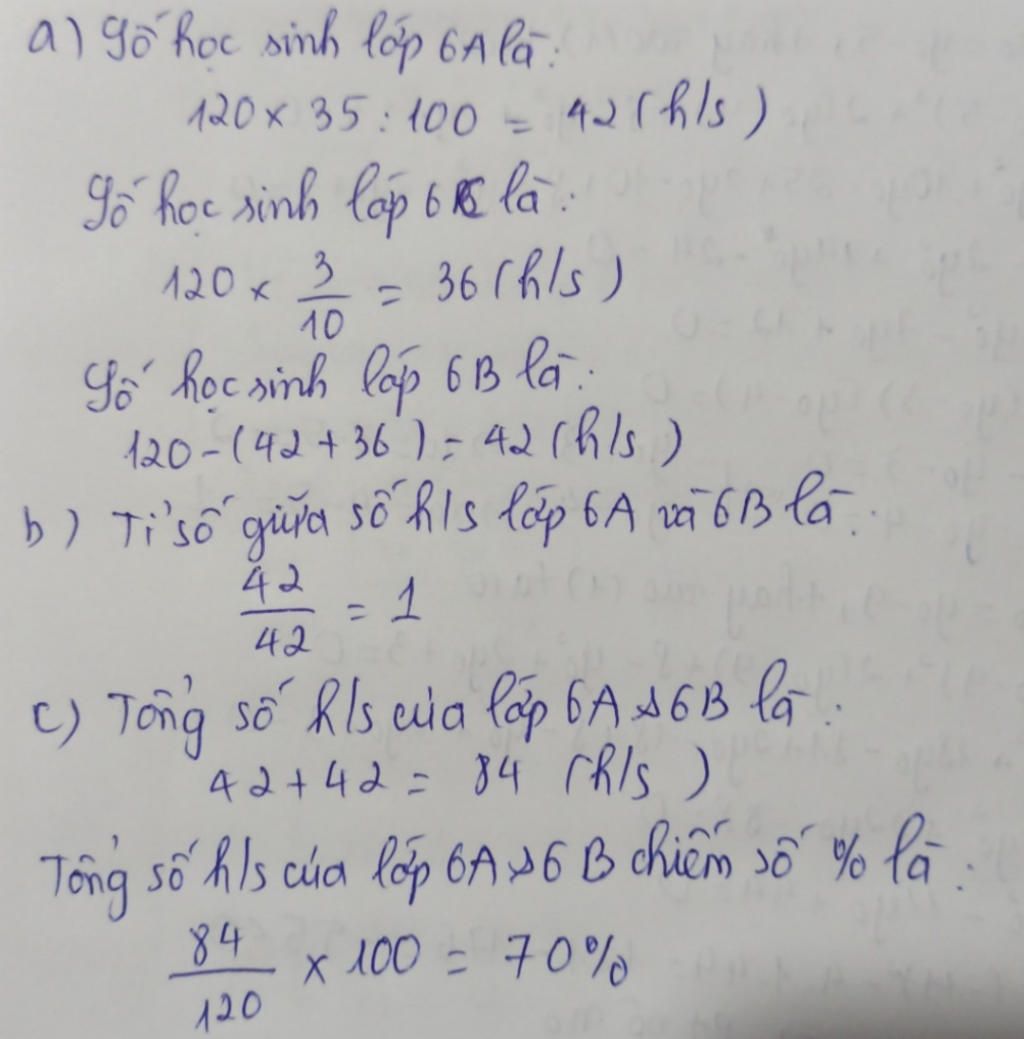 a) Số học sinh lớp 6A là:
120 × 35 : 100 = 42 (h/s)
Số học sinh lớp 6C là:
120 × 3/10 = 36 (h/s)
Số học sinh lớp 6B là:
120 - (42 + 36) = 42 (h/s)
b) Tỉ số giữa số h/s lớp 6A và 6B là:
42/42 = 1
c) Tổng số h/s của lớp 6A & 6B là:
42 + 42 = 84 (h/s)
Tổng số h/s của lớp 6A & 6B chiếm số % là:
84/120 × 100 = 70%